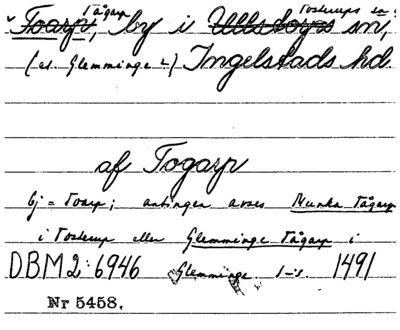 Tågarp Tosterups sn
Toarp, by i Ullstorps sn,
(el. Glemminge?) Ingelstads hd
af Togarp
Ej = Toarp; antingen avses Munka Tågarp
i Tosterup eller Glemminge Tågarp i
DBM2:6946 Glemminge s-n. 1491
Nr 5458.